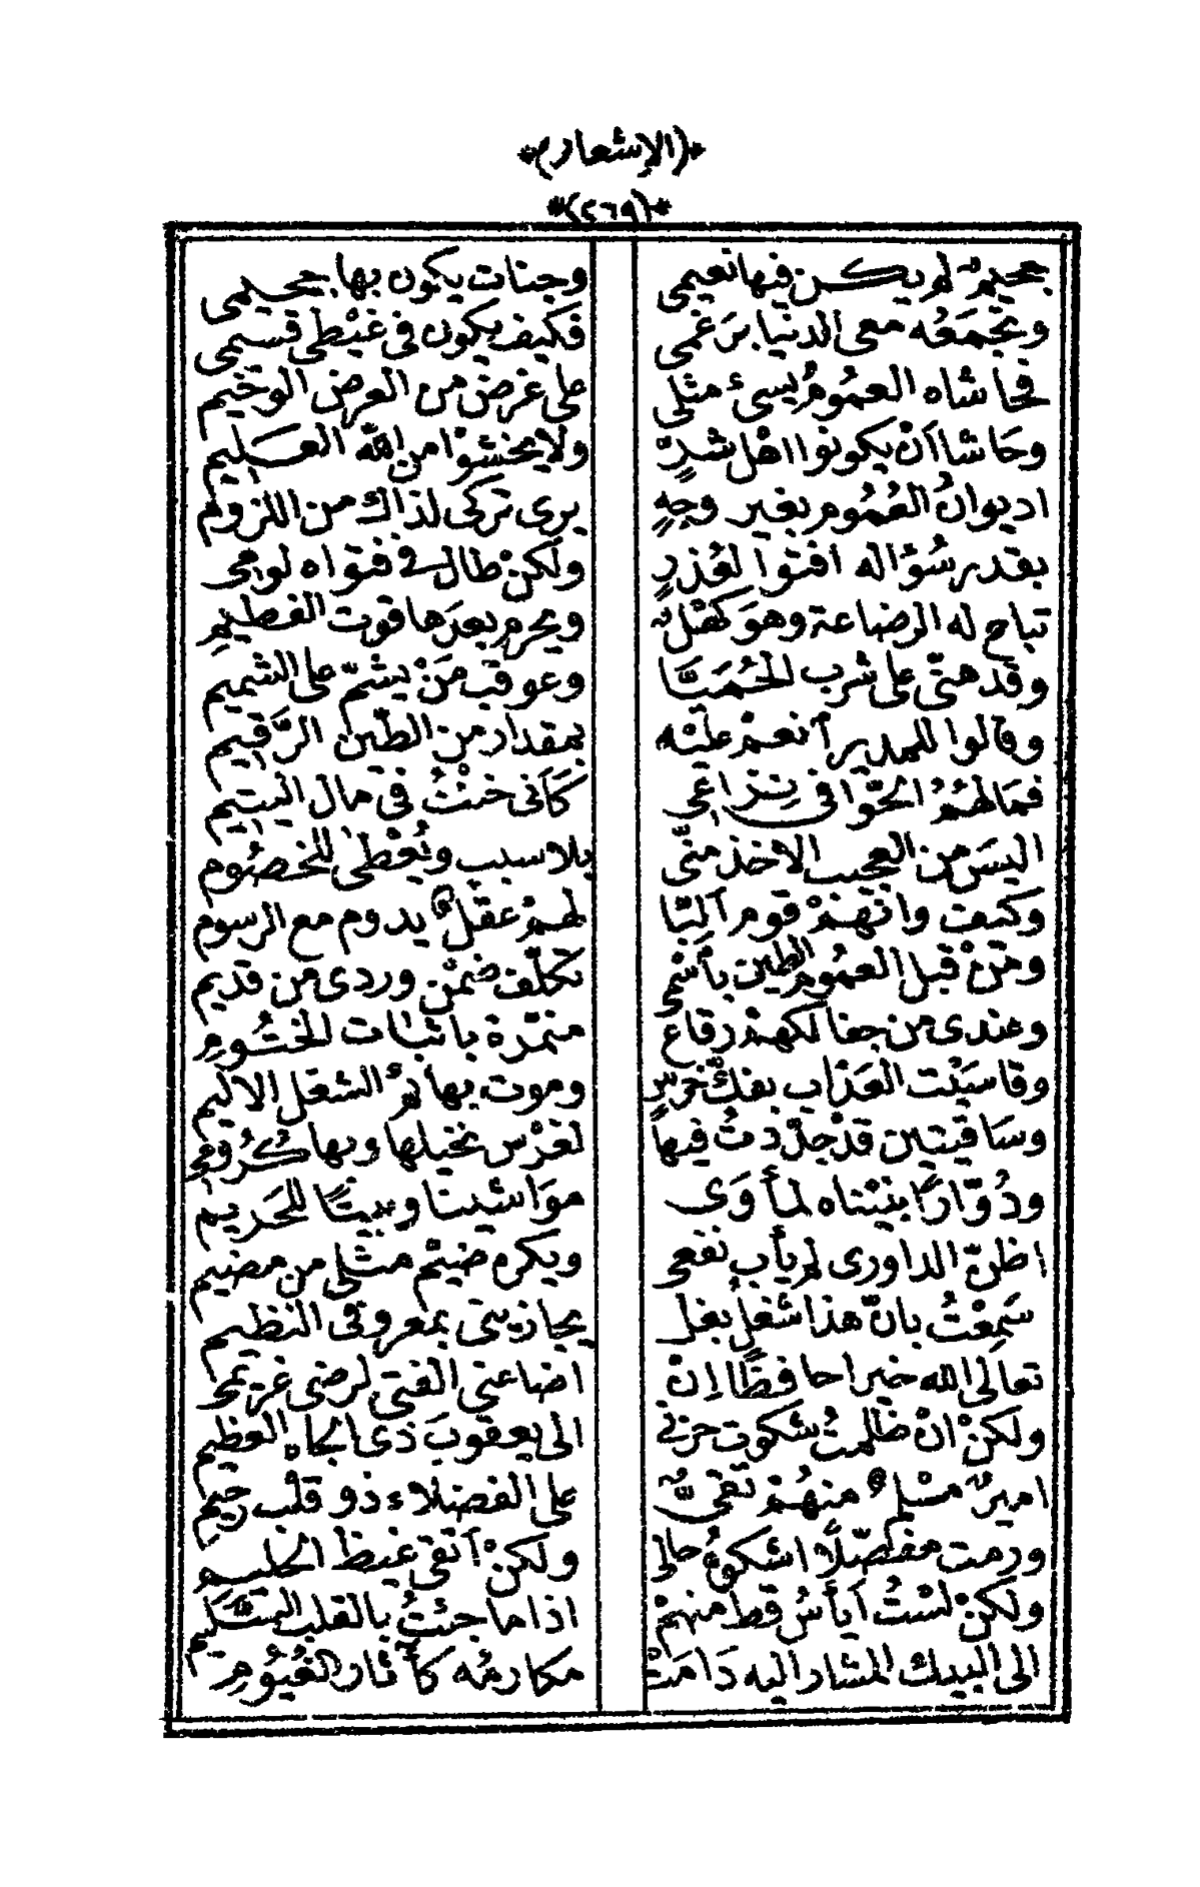 *(الإشعار م*
*(٢٦٩)*
جحيمٌ لم يكن فيها نعيمى وجنات يكون بها جحيمى
وتجْمَعُه معى الدنيا برَغمى فكيف يكون فى غيْطى قسيمى
فحاشاه العمُومُ يسىء مثلى على غرض من العرض الوخيم
وحَاشا أنْ يكونوا اهْل شدٍّ ولا يخشوْا من الله العليم
اديوانُ العُمُوم بغير وجهٍ يرى تركى لذاك من اللزوم
بقدر سُؤاله افتوا لعُذرٍ ولكنْ طال فى فتواه لومى
تباح له الرضاعة وهوَ كهْلٌ ويحرم بعدَها قوت الفطيم
وقد هنّى على شرب الحُمَيَّا وعوقب مَنْ يشمّ على الشميم
وقالوا للمدير أنعمْ عليْه بمقدار من الطّين الرَّقيم
فمالهُمُ الحّوا فى نِزاعى كأنى خنْتُ فى مال اليتيم
اليسَ من العجيب الاخذ منّى بلا سبب ويُعْطى للخصُوم
وكيف وانهمْ قوم ألبّا لهمْ عقلٌ يدوم مع الرسوم
ومنْ قبل العمُوم الطين بأسْمى تكلّف ضمْن وردى من قديم
وعندى من جفالكهمْ رقاع منمّرة باثبات الختُومِ
وقاسيْت العَذاب بفكّ خرْسٍ وموت بهائم الشغل الاليم
وساقيتين قدْ جدّدتُ فيها لغرْس نخيلها وبها كُرُومى
ودُوّارًا بنيْناه لمأوَى موَاشينا وبيتًا للحَريم
اظنّ الداورى لم يأب نفعى ويكره ضيْم مثلى من مضيم
سَمِعْتُ بانّ هذا شغلُ بغل يجاذبنى بمعروفى النظيم
تعالى الله خيرا حافظًا اِنْ اضاعنى الفتى لرضى غريمى
ولكنْ انْ ظلمتُ شكوت حزنى الى يعقوبَ ذى الجاه العظيم
اميرٌ مسْلمٌ منهُمْ تقىٌّ على الفضلاء ذو قلْب رحيم
ورمت مفصّلًا اشكوُ حالى ولكنْ أتقى غيظ الحليم
ولكنْ لسْتُ أيأسُ قط منهمْ اذا ما جئتُ بالقلب السَّليم
الى البيك المشار اليه دَامَتْ مكارمُه كأثار الغُيُومِ